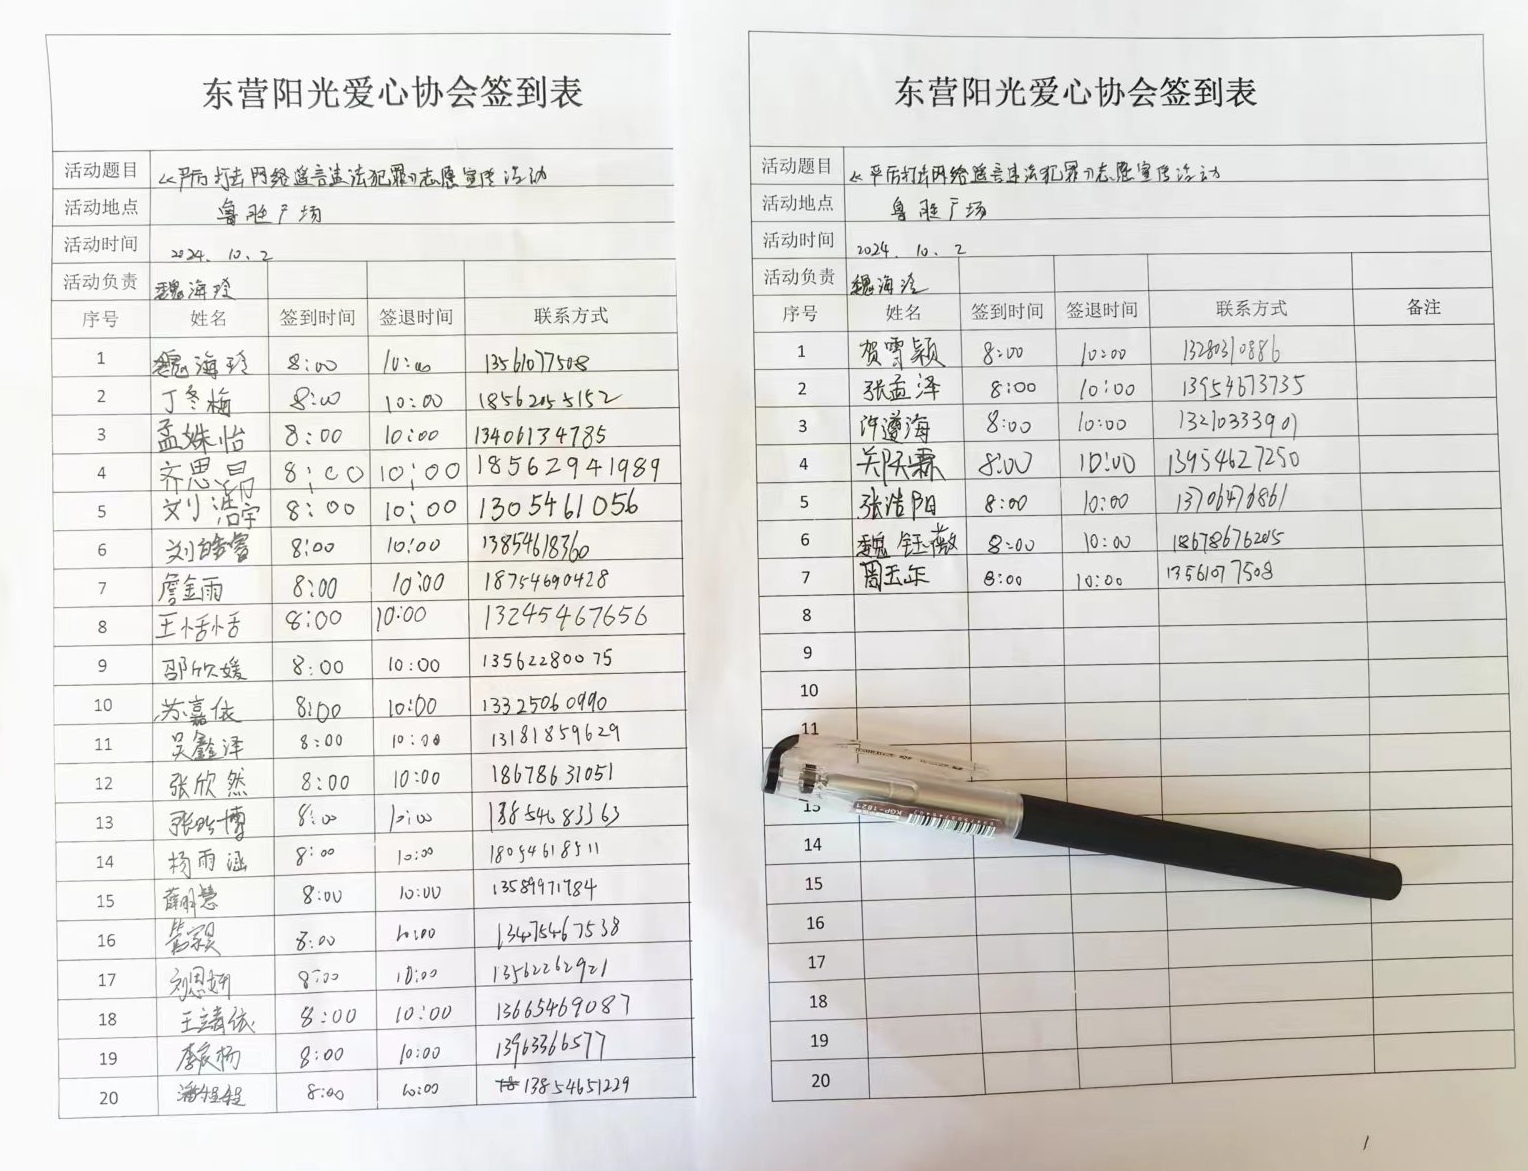 东营阳光爱心协会签到表
活动题目 《严厉打击网络谣言违法犯罪》志愿宣传活动
活动地点 鲁胜广场
活动时间 2024.10.2
活动负责 魏海玲
序号 姓名 签到时间 签退时间 联系方式
1 魏海玲 8:00 10:00 13561077508
2 丁冬梅 8:00 10:00 18562055152
3 孟姝怡 8:00 10:00 13406134785
4 齐思昂 8:00 10:00 18562941989
5 刘浩宇 8:00 10:00 1305461056
6 刘皓睿 8:00 10:00 13854618360
7 詹金雨 8:00 10:00 18754690428
8 王恬恬 8:00 10:00 13245467656
9 邵欣媛 8:00 10:00 13562280075
10 苏嘉依 8:00 10:00 13325060990
11 吴鑫泽 8:00 10:00 13181859629
12 张欣然 8:00 10:00 18678631051
13 张 博 8:00 10:00 13854683363
14 杨雨涵 8:00 10:00 18054618511
15 薛明慧 8:00 10:00 13589971784
16 8:00 10:00 13475467538
17 刘恩妍 8:00 10:00 13562262921
18 王靖依 8:00 10:00 13665469087
19 李宸杨 8:00 10:00 13963366577
20 潘程程 8:00 10:00 13854651229
东营阳光爱心协会签到表
活动题目 《严厉打击网络谣言违法犯罪》志愿宣传活动
活动地点 鲁胜广场
活动时间 2024.10.2
活动负责 魏海玲
序号 姓名 签到时间 签退时间 联系方式 备注
1 贺雪颖 8:00 10:00 13280310886
2 张孟泽 8:00 10:00 13954673735
3 许遵海 8:00 10:00 13210333901
4 关跃霖 8:00 10:00 13954627250
5 张浩阳 8:00 10:00 13706476861
6 魏钰薇 8:00 10:00 18678676205
7 周玉东 8:00 10:00 13561077508
8
9
10
11
13
14
15
16
17
18
19
20